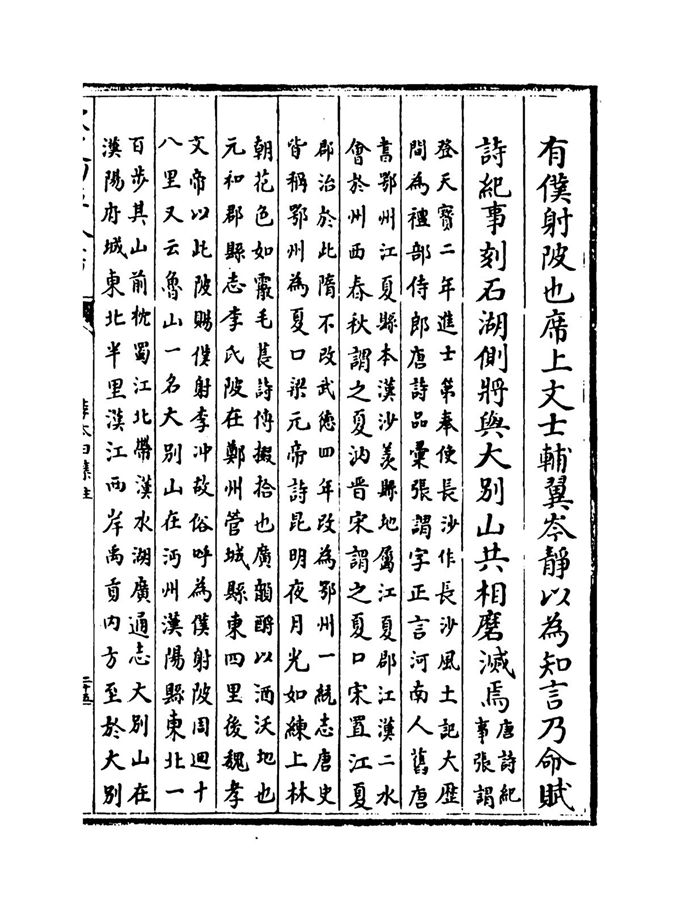 有僕射陂也席上文士輔翼岑靜以為知言乃命賦
詩紀事刻石湖側將與大別山共相磨滅焉唐詩紀
事張謂
登天寳二年進士第奉使長沙作長沙風土記大歴
間為禮部侍郎唐詩品彚張謂字正言河南人舊唐
書鄂州江夏縣本漢沙羡縣地屬江夏郡江漢二水
會於州西春秋謂之夏汭晋宋謂之夏口宋置江夏
郡治於此隋不改武徳四年改為鄂州一統志唐史
皆稱鄂州為夏口梁元帝詩昆明夜月光如練上林
朝花色如霰毛萇詩傳掇拾也廣韻酹以酒沃地也
元和郡縣志李氏陂在鄭州管城縣東四里後魏孝
文帝以此陂賜僕射李冲故俗呼為僕射陂周廻十
八里又云魯山一名大別山在沔州漢陽縣東北一
百步其山前枕蜀江北帶漢水湖廣通志大別山在
漢陽府城東北半里漢江西岸禹貢内方至於大別
李太白集注